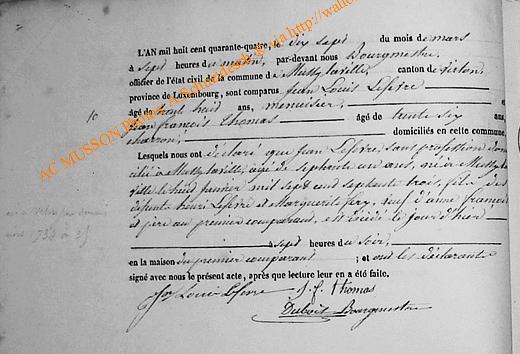 L'AN mil huit cent quarante-quatre, le dix sept du mois de mars
à sept heures du matin, par-devant nous Bourgmestre,
officier de l'état civil de la commune de Mussy laville, canton de Virton,
province de Luxembourg, sont comparus Jean Louis Lefevre
âgé de trente huit ans, menuisier, et
Jean françois Thomas âgé de trente six
ans, charron, domiciliés en cette commune
Lesquels nous ont déclaré que Jean Lefevre, sans profession domi
cilié à Mussy laville, agé de septante un ans, né à Mussy la
ville le huit Janvier mil sept cent septante trois, fils des
défunts henri Lefevre et Marguerite Jery, veuf d'anne
et père au premier comparant, est décédé le jour d'hier
à sept heures du soir,
en la maison du premier comparant ; et ont les déclarants
signé avec nous le présent acte, après que lecture leur en a été faite.
Louis Lefevre J. f. thomas
Dubois Bourgmestre
10
AC MUSSON http://